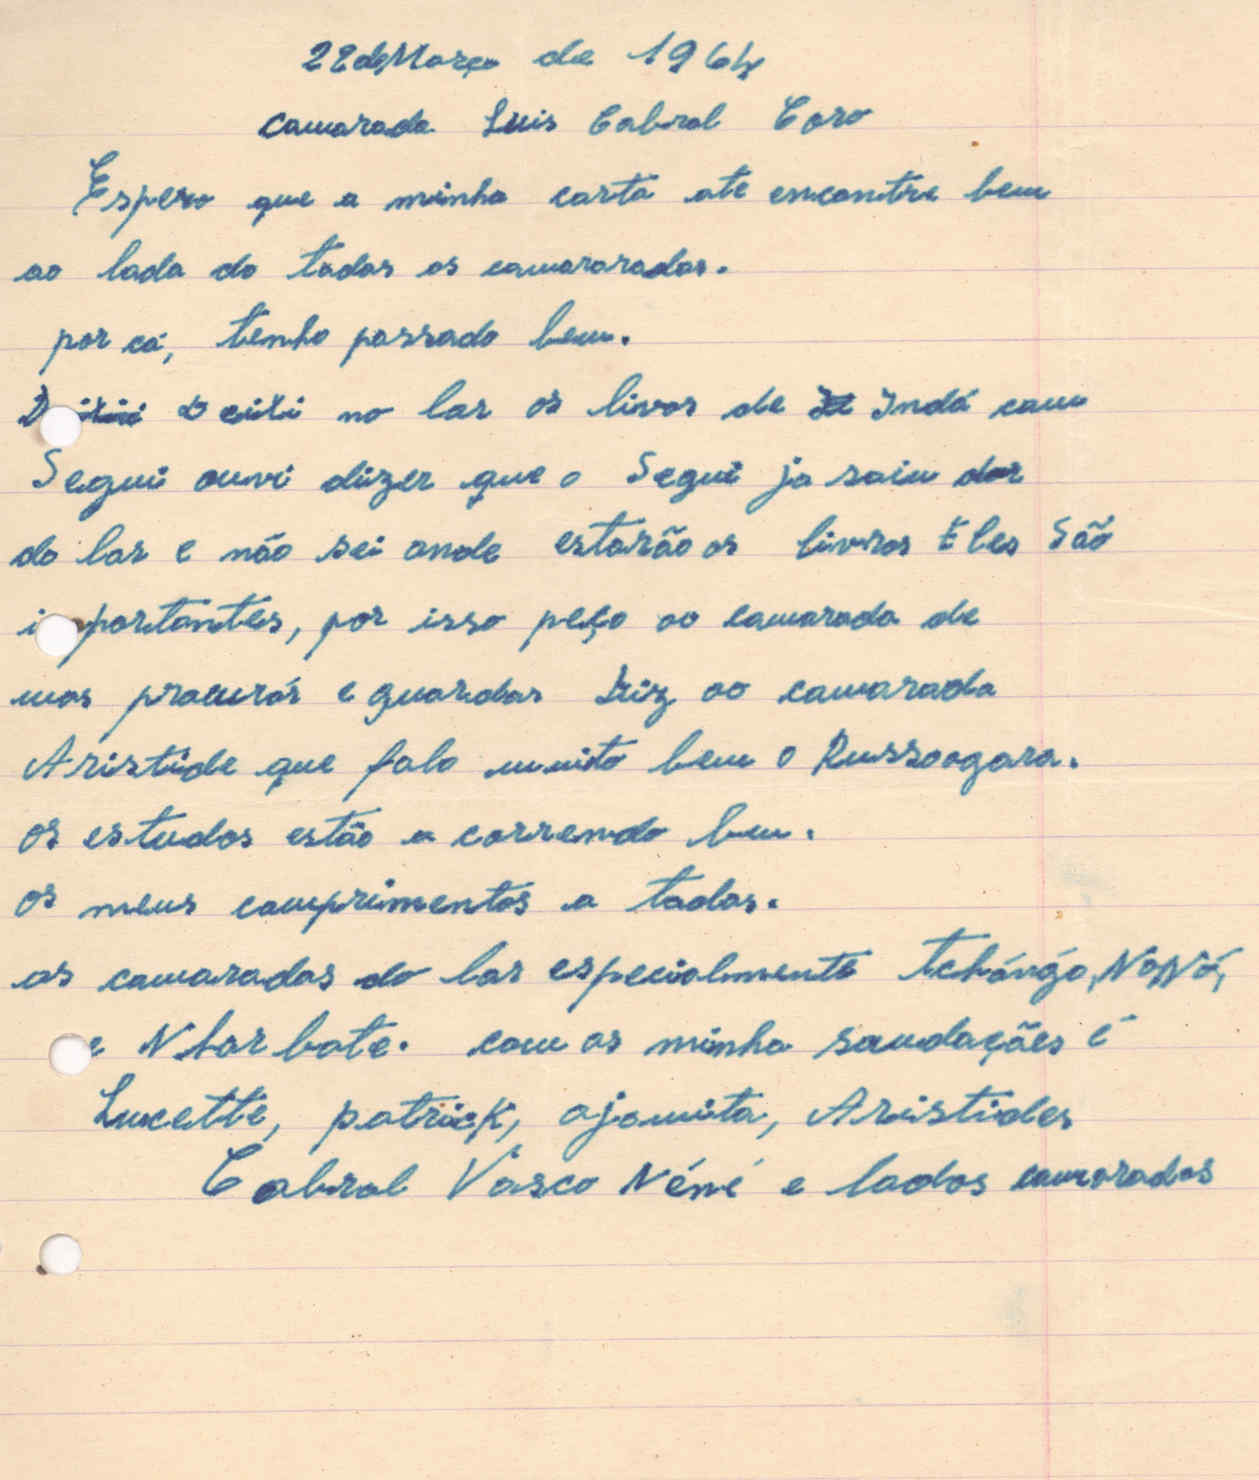 22 de Março de 1964
camarada Luis Cabral Caro
Espero que a minha carta ate encontre bem
ao lada do todos os camararadas.
por cá, tenho passado bem.
Deixi no lar os livros de Indá com
Segui ouvi dizer que o Segui ja saiu dar
do lar e não sei onde estarão os livros Eles São
importantes, por isso peço ao camarada de
mas procurár e guardar Diz ao camarada
Aristide que falo muito bem o Russo agora.
os estudos estão a correndo bem.
os meus comprimentos a todos.
as camaradas do lar especialmente Tchángo, NôNô,
e N bar bate. com as minha saudações é
Lucette, patrick, ajamita, Aristides
Cabral Vasco Néné e lados camaradas